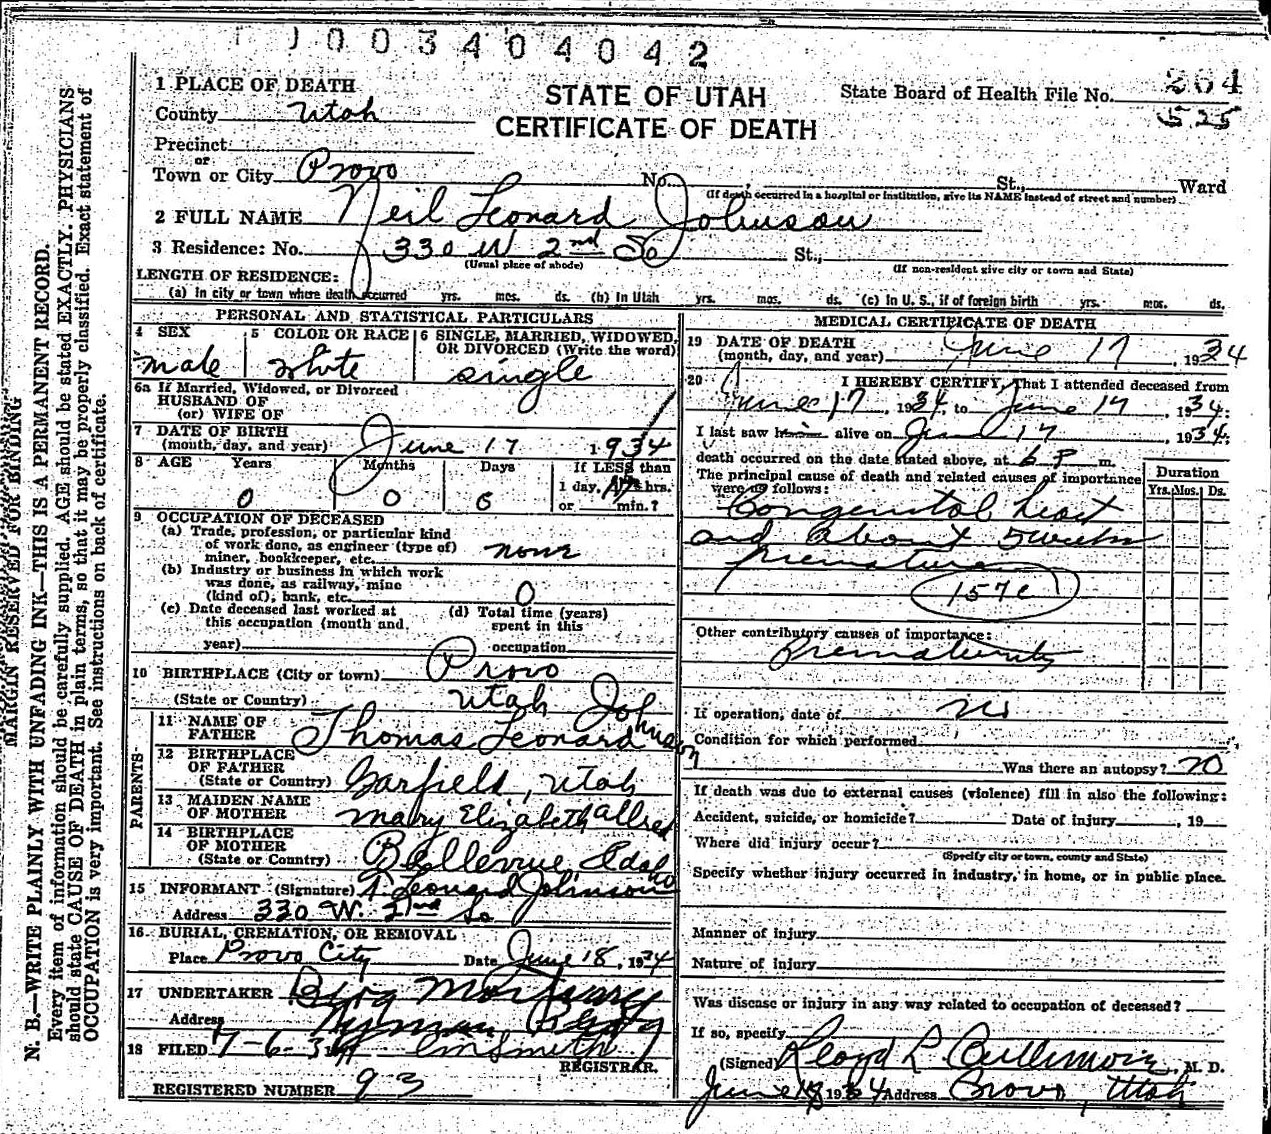 0 0 3 4 0 4 0 4 2
1 PLACE OF DEATH
County Utah
Precinct
or
Town or City Provo No. St., Ward
STATE OF UTAH
CERTIFICATE OF DEATH
State Board of Health File No. 264
525
(If death occurred in a hospital or institution, give its NAME instead of street and number)
2 FULL NAME Neil Leonard Johnson
3 Residence: No. 330 W 2nd So St.,
(Usual place of abode) (If non-resident give city or town and State)
LENGTH OF RESIDENCE:
(a) In city or town where death occurred yrs. mos. ds. (b) In Utah yrs. mos. ds. (c) In U. S., if of foreign birth yrs. mos. ds.
PERSONAL AND STATISTICAL PARTICULARS
4 SEX 5 COLOR OR RACE 6 SINGLE, MARRIED, WIDOWED, OR DIVORCED (Write the word)
male white single
6a If Married, Widowed, or Divorced
HUSBAND OF
(or) WIFE OF
7 DATE OF BIRTH
(month, day, and year) June 17 1934
8 AGE Years Months Days If LESS than
0 0 0 1 day, hrs.
or min.?
9 OCCUPATION OF DECEASED
(a) Trade, profession, or particular kind
of work done, as engineer (type of)
miner, bookkeeper, etc. none
(b) Industry or business in which work
was done, as railway, mine
(kind of), bank, etc. 0
(c) Date deceased last worked at (d) Total time (years)
this occupation (month and spent in this
year) occupation
10 BIRTHPLACE (City or town) Provo
(State or Country) Utah
PARENTS
11 NAME OF
FATHER Thomas Leonard Johnson
12 BIRTHPLACE
OF FATHER
(State or Country) Garfield, Utah
13 MAIDEN NAME
OF MOTHER Mary Elizabeth Allred
14 BIRTHPLACE
OF MOTHER
(State or Country) Bellevue Idaho
15 INFORMANT (Signature) T. Leonard Johnson
Address 330 W. 2nd So
16 BURIAL, CREMATION, OR REMOVAL
Place Provo City Date June 18, 1934
17 UNDERTAKER Berg Mortuary
Address
18 FILED 7-6-34 Smith
REGISTRAR.
REGISTERED NUMBER 93
MEDICAL CERTIFICATE OF DEATH
19 DATE OF DEATH
(month, day, and year) June 17, 1934
20 I HEREBY CERTIFY, That I attended deceased from
June 17, 1934, to June 17, 1934:
I last saw him alive on June 17, 1934:
death occurred on the date stated above, at 6 P m.
The principal cause of death and related causes of importance
were as follows:
Duration
Yrs. Mos. Ds.
Congenital heart
and about 5 weeks
premature
157c
Other contributory causes of importance:
Prematurity
If operation, date of no
Condition for which performed
Was there an autopsy? no
If death was due to external causes (violence) fill in also the following:
Accident, suicide, or homicide? Date of injury , 19
Where did injury occur?
(Specify city or town, county and State)
Specify whether injury occurred in industry, in home, or in public place.
Manner of injury
Nature of injury
Was disease or injury in any way related to occupation of deceased?
If so, specify
(Signed) Lloyd L Cullimore, M. D.
June 18 1934 Address Provo, Utah
MARGIN RESERVED FOR BINDING
N. B.—WRITE PLAINLY WITH UNFADING INK—THIS IS A PERMANENT RECORD.
Every item of information should be carefully supplied. AGE should be stated EXACTLY. PHYSICIANS
should state CAUSE OF DEATH in plain terms, so that it may be properly classified. Exact statement of
OCCUPATION is very important. See instructions on back of certificate.